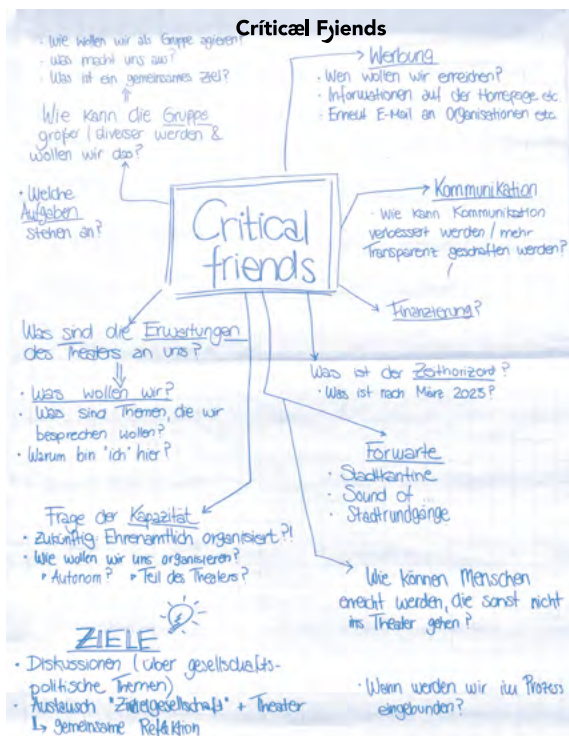 Críticæl Fjends
· Wie wollen wir als Gruppe agieren?
· Was macht uns aus?
· Was ist ein gemeinsames Ziel?
Wie kann die Gruppe
größer / diverser werden &
wollen wir das?
· Welche
Aufgaben
stehen an?
Werbung
· Wen wollen wir erreichen?
· Informationen auf der Homepage etc.
· Erneut E-Mail an Organisationen etc.
Critical
friends
Kommunikation
· Wie kann Kommunikation
verbessert werden / mehr
Transparent geschaffen werden?
Finanzierung?
Was sind die Erwartungen
des Theaters an uns?
· Was wollen wir?
· Was sind Themen, die wir
besprechen wollen?
· Warum bin "ich" hier?
Was ist der Zeithorizont?
· Was ist nach März 2025?
Formate
· Stadtkantine
· Sound of ...
· Stadtrundgänge
Frage der Kapazität
· Zukünftig Ehrenamtlich organisiert?!
· Wie wollen wir uns organisieren?
Autonom? Teil des Theaters?
Wie können Menschen
erreicht werden, die sonst nicht
ins Theater gehen?
ZIELE
· Diskussionen (über gesellschafts-
politische Themen)
· Austausch "Zivilgesellschaft" + Theater
↳ gemeinsame Reflektion
· Wann werden wir im Prozess
eingebunden?